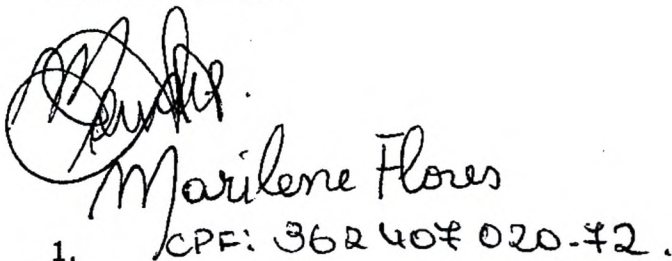 Marilene Flores
1. CPF: 362 407 020-72.